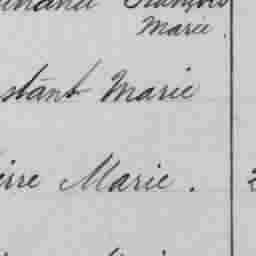 François
Marie.
stant Marie
ierre Marie.